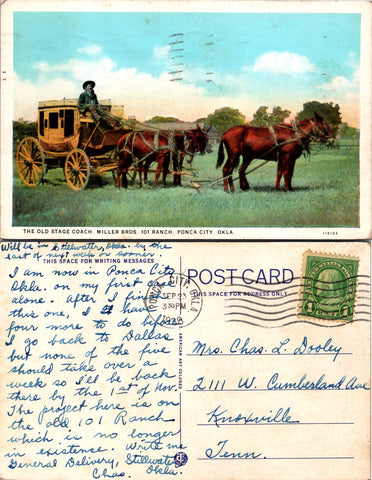 THE OLD STAGE COACH, MILLER BROS. 101 RANCH, PONCA CITY, OKLA.
THIS SPACE FOR WRITING MESSAGES
Will be in Stillwater, Okla. by the
last of next week or sooner.
I am now in Ponca City
Okla. on my first job
alone. After I finish
this one, I'll have
four more to do before
I go back to Dallas
but none of the five
should take over a
week so I'll be back
there by the 1st of Nov.
The project here is on
the old 101 Ranch
which is no longer
in existence. Write me
General Delivery, Stillwater,
Okla.
Chas.
POST CARD
THIS SPACE FOR ADDRESS
PONCA CITY, OKLA
SEP 23
3 PM
1
1
CENT
Mrs. Chas. L. Dooley
2111 W. Cumberland Ave
Knoxville
Tenn.